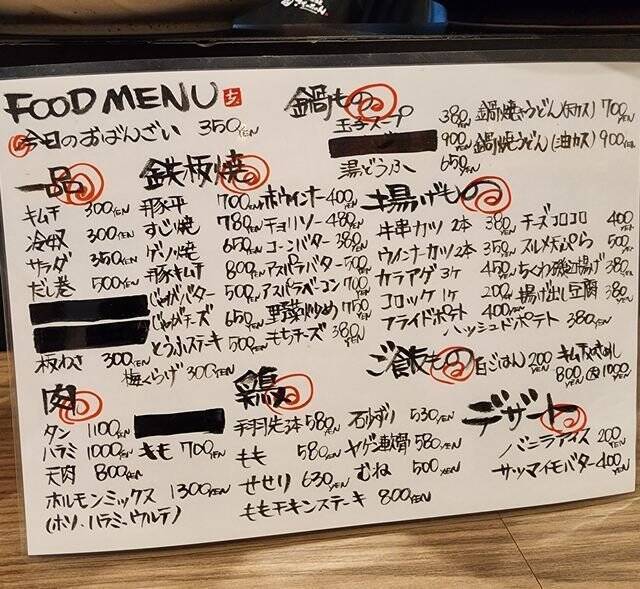 FOOD MENU
今日のおばんざい 350YEN
一品
キムチ 300YEN
冷奴 300YEN
サラダ 350YEN
だし巻 500YEN
板わさ 300YEN
梅くらげ 300YEN
鉄板焼
豚平 700YEN
すじ焼 780YEN
ゲソ焼 650YEN
豚キムチ 800YEN
じゃがバター 500YEN
じゃがチーズ 650YEN
とうふステーキ 500YEN
赤ウインナー 400YEN
チョリソー 480YEN
コーンバター 380YEN
アスパラバター 500YEN
アスパラベーコン 700YEN
野菜炒め 750YEN
もちチーズ 380YEN
鍋もの
玉子スープ 380YEN
900YEN
湯どうふ 650YEN
鍋焼うどん(天カス) 700YEN
鍋焼うどん(油カス) 900YEN
揚げもの
牛串カツ 2本 380YEN
ウインナーカツ 2本 350YEN
カラアゲ 3ケ 450YEN
コロッケ 1ケ 200YEN
フライドポテト 400YEN
ハッシュドポテト 380YEN
チーズコロコロ 400YEN
スルメ天ぷら 500YEN
ちくわ磯辺揚げ 380YEN
揚げ出し豆腐 380YEN
ご飯もの
白ごはん 200YEN
800YEN 1000YEN
肉
タン 1100YEN
ハラミ 1000YEN
天肉 800YEN
ホルモンミックス 1300YEN
(ホソ、ハラミ、ウルテ)
もも 700YEN
鶏
手羽先3本 580YEN
もも 580YEN
せせり 630YEN
ももチキンステーキ 800YEN
石ずり 530YEN
ヤゲン軟骨 580YEN
むね 500YEN
デザート
バニラアイス 200YEN
サツマイモバター 400YEN